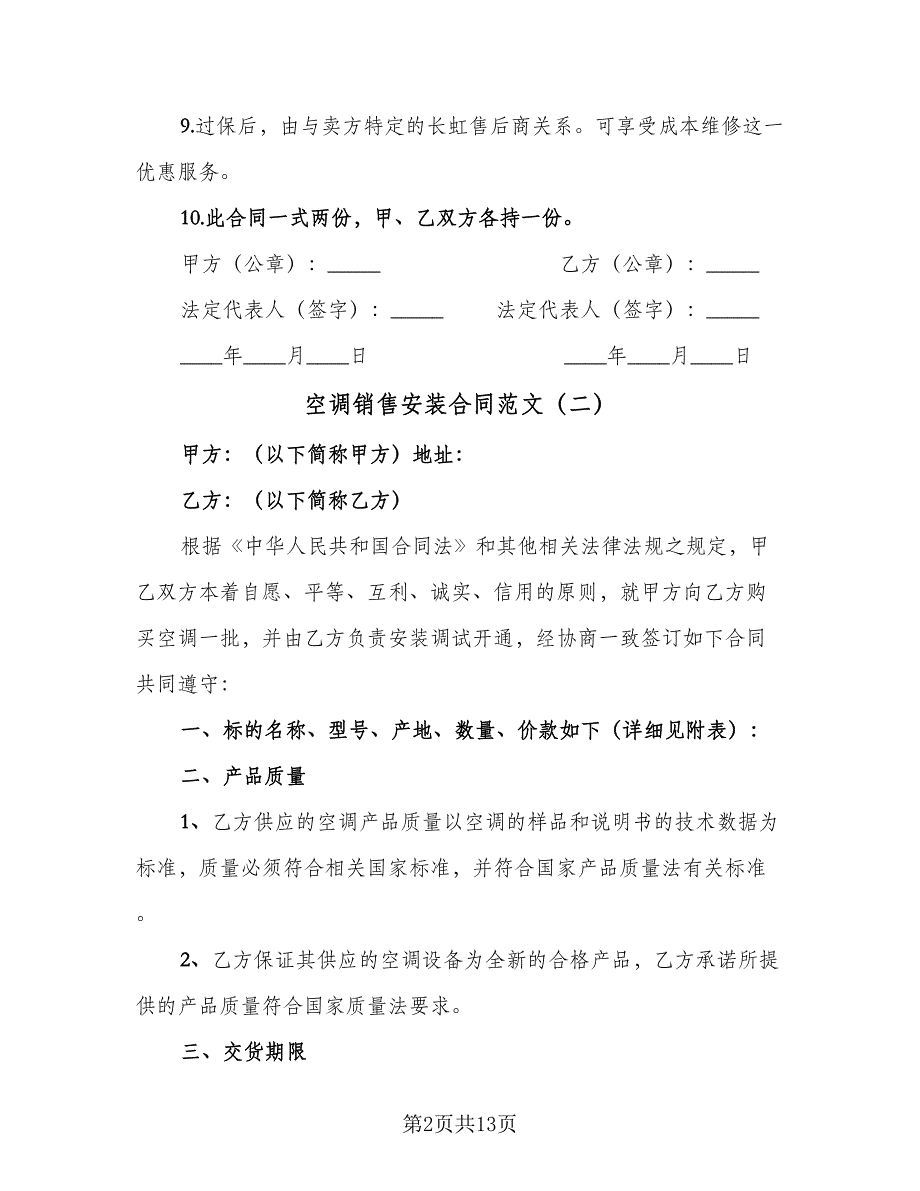 9.过保后，由与卖方特定的长虹售后商关系。可享受成本维修这一
优惠服务。
10.此合同一式两份，甲、乙双方各持一份。
甲方（公章）：_____ 乙方（公章）：_____
法定代表人（签字）：_____ 法定代表人（签字）：_____
____年____月____日 ____年____月____日
空调销售安装合同范文（二）
甲方：（以下简称甲方）地址：
乙方：（以下简称乙方）
根据《中华人民共和国合同法》和其他相关法律法规之规定，甲
乙双方本着自愿、平等、互利、诚实、信用的原则，就甲方向乙方购
买空调一批，并由乙方负责安装调试开通，经协商一致签订如下合同
共同遵守：
一、标的名称、型号、产地、数量、价款如下（详细见附表）：
二、产品质量
1、乙方供应的空调产品质量以空调的样品和说明书的技术数据为
标准，质量必须符合相关国家标准，并符合国家产品质量法有关标准
。
2、乙方保证其供应的空调设备为全新的合格产品，乙方承诺所提
供的产品质量符合国家质量法要求。
三、交货期限
第2页共13页